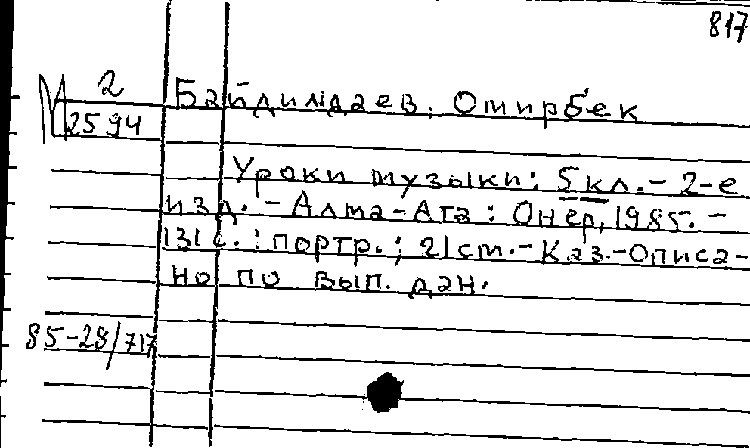 817
М 2
2594
Байдилдаев, Омирбек
Уроки музыки: 5 кл. - 2-е
изд. - Алма-Ата: Онер, 1985. -
131 с.: портр.; 21 см. - Каз. - Описа-
но по вып. дан.
85-28/717